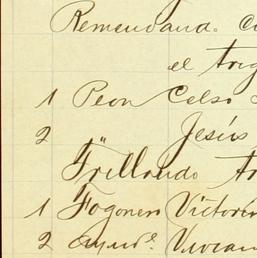 Remendand. C
el trig
1 Peon Celso
2 " Jesús
Trillando tr
1 Fogonero Victorin
2 Ayud.e Vivian